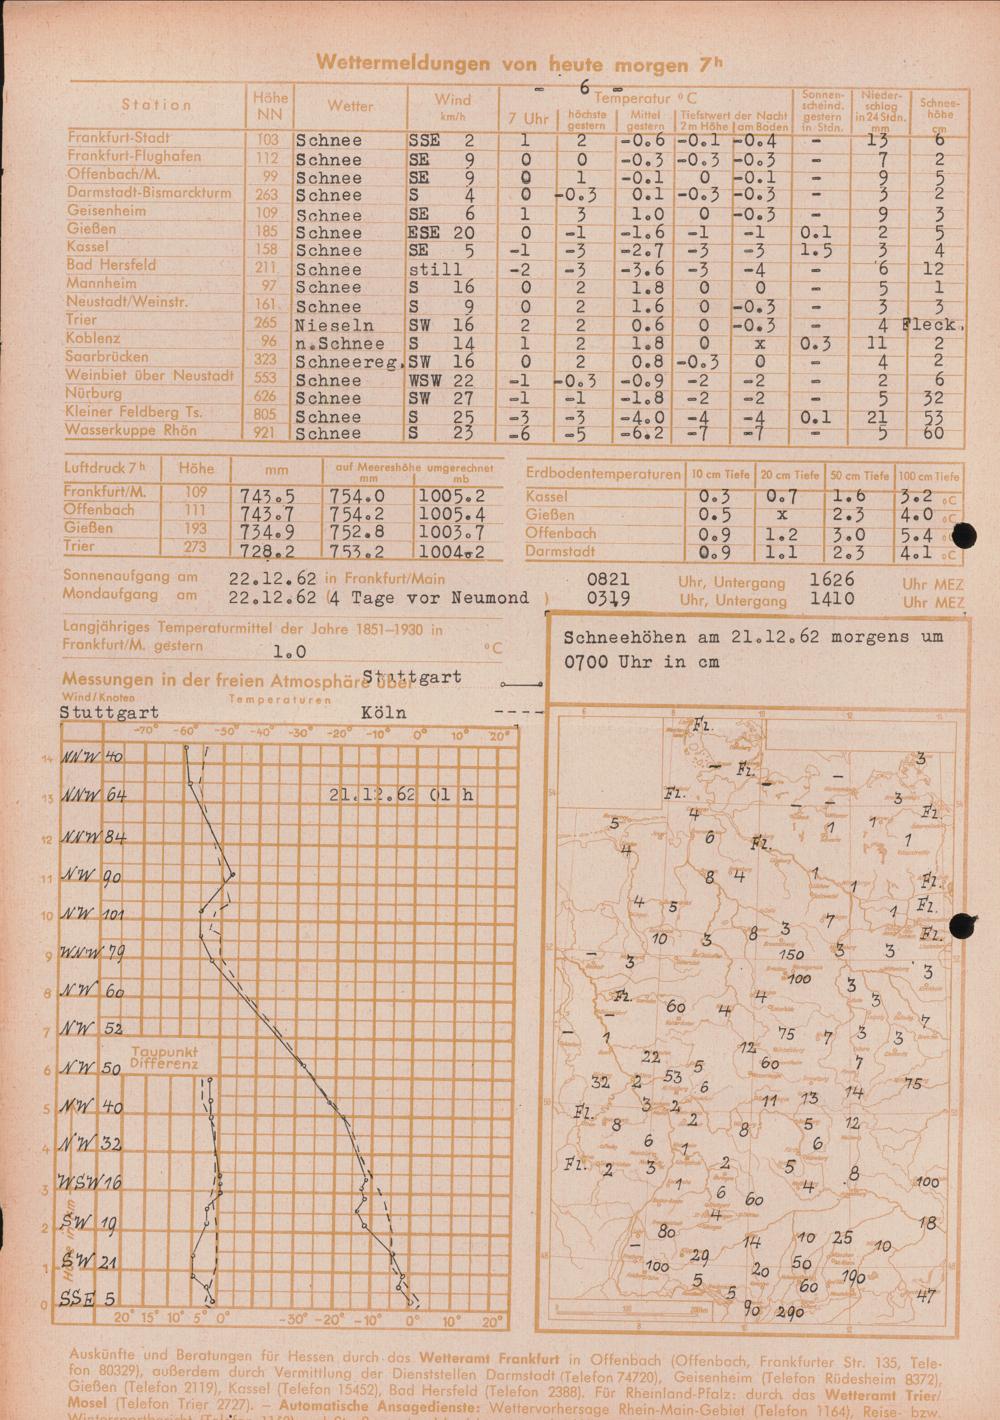 Wettermeldungen von heute morgen 7h
- 6 -
Station Höhe NN Wetter Wind km/h Temperatur °C 7 Uhr höchste gestern Mittel gestern Tiefstwert der Nacht 2m Höhe am Boden Sonnenscheind. gestern in Stdn. Niederschlag in 24 Stdn. mm Schneehöhe cm
Frankfurt-Stadt 103 Schnee SSE 2 1 2 -0.6 -0.1 -0.4 - 13 6
Frankfurt-Flughafen 112 Schnee SE 9 0 0 -0.3 -0.3 -0.3 - 7 2
Offenbach/M. 99 Schnee SE 9 0 1 -0.1 0 -0.1 - 9 5
Darmstadt-Bismarckturm 263 Schnee S 4 0 -0.3 0.1 -0.3 -0.3 - 3 2
Geisenheim 109 Schnee SE 6 1 3 1.0 0 -0.3 - 9 3
Gießen 185 Schnee ESE 20 0 -1 -1.6 -1 -1 0.1 2 5
Kassel 158 Schnee SE 5 -1 -3 -2.7 -3 -3 1.5 3 4
Bad Hersfeld 211 Schnee still -2 -3 -3.6 -3 -4 - 6 12
Mannheim 97 Schnee S 16 0 2 1.8 0 0 - 5 1
Neustadt/Weinstr. 161 Schnee S 9 0 2 1.6 0 -0.3 - 3 3
Trier 265 Nieseln SW 16 2 2 0.6 0 -0.3 - 4 Fleck.
Koblenz 96 n.Schnee S 14 1 2 1.8 0 x 0.3 11 2
Saarbrücken 323 Schneereg. SW 16 0 2 0.8 -0.3 0 - 4 2
Weinbiet über Neustadt 553 Schnee WSW 22 -1 -0.3 -0.9 -2 -2 - 2 6
Nürburg 626 Schnee SW 27 -1 -1 -1.8 -2 -2 - 5 32
Kleiner Feldberg Ts. 805 Schnee S 25 -3 -3 -4.0 -4 -4 0.1 21 53
Wasserkuppe Rhön 921 Schnee S 23 -6 -5 -6.2 -7 -7 - 5 60
Luftdruck 7h Höhe mm auf Meereshöhe umgerechnet mm mb
Frankfurt/M. 109 743.5 754.0 1005.2
Offenbach 111 743.7 754.2 1005.4
Gießen 193 734.9 752.8 1003.7
Trier 273 728.2 753.2 1004.2
Erdbodentemperaturen 10 cm Tiefe 20 cm Tiefe 50 cm Tiefe 100 cm Tiefe
Kassel 0.3 0.7 1.6 3.2 °C
Gießen 0.5 x 2.3 4.0 °C
Offenbach 0.9 1.2 3.0 5.4 °C
Darmstadt 0.9 1.1 2.3 4.1 °C
Sonnenaufgang am 22.12.62 in Frankfurt/Main 0821 Uhr, Untergang 1626 Uhr MEZ
Mondaufgang am 22.12.62 (4 Tage vor Neumond ) 0319 Uhr, Untergang 1410 Uhr MEZ
Langjähriges Temperaturmittel der Jahre 1851–1930 in
Frankfurt/M. gestern 1.0 °C
Messungen in der freien Atmosphäre über Stuttgart
Wind/Knoten Temperaturen
Stuttgart Köln
-70° -60° -50° -40° -30° -20° -10° 0° 10° 20°
14 NNW 40
13 NNW 64 21.12.62 01 h
12 NNW 84
11 NW 90
10 NW 101
9 WNW 79
8 NW 60
7 NW 52
Taupunkt
Differenz
6 NW 50
5 NW 40
4 NW 32
3 WSW 16
2 SW 19
1 SW 21
0 SSE 5
Höhe in km
20° 15° 10° 5° 0° -30° -20° -10° 0° 10° 20°
Schneehöhen am 21.12.62 morgens um
0700 Uhr in cm
Fl.
3
- Fl. -
Fl. - 3
4 - - Fl.
5 1 1
4 6 Fl. 1
8 4 1 1 Fl.
4 5 7 1 Fl.
10 3 8 3 Fl.
- 3 150 3 3
100 3 3
Fl. 60 4 4 3
- 7
- 1 75 7 3 3
22 12 60 7
32 2 53 5 6 75
3 2 11 13 14
Fl. 8 2 8 5 12
6 1 6
Fl. 2 3 2 5 8
1 6 60 4 100
4 18
80 14 10 25 10
- 100 29 20 50 190
5 5 60 47
90 290
Auskünfte und Beratungen für Hessen durch das Wetteramt Frankfurt in Offenbach (Offenbach, Frankfurter Str. 135, Tele-
fon 80329), außerdem durch Vermittlung der Dienststellen Darmstadt (Telefon 74720), Geisenheim (Telefon Rüdesheim 8372),
Gießen (Telefon 2119), Kassel (Telefon 15452), Bad Hersfeld (Telefon 2388). Für Rheinland-Pfalz: durch das Wetteramt Trier/
Mosel (Telefon Trier 2727). – Automatische Ansagedienste: Wettervorhersage Rhein-Main-Gebiet (Telefon 1164), Reise- bzw.